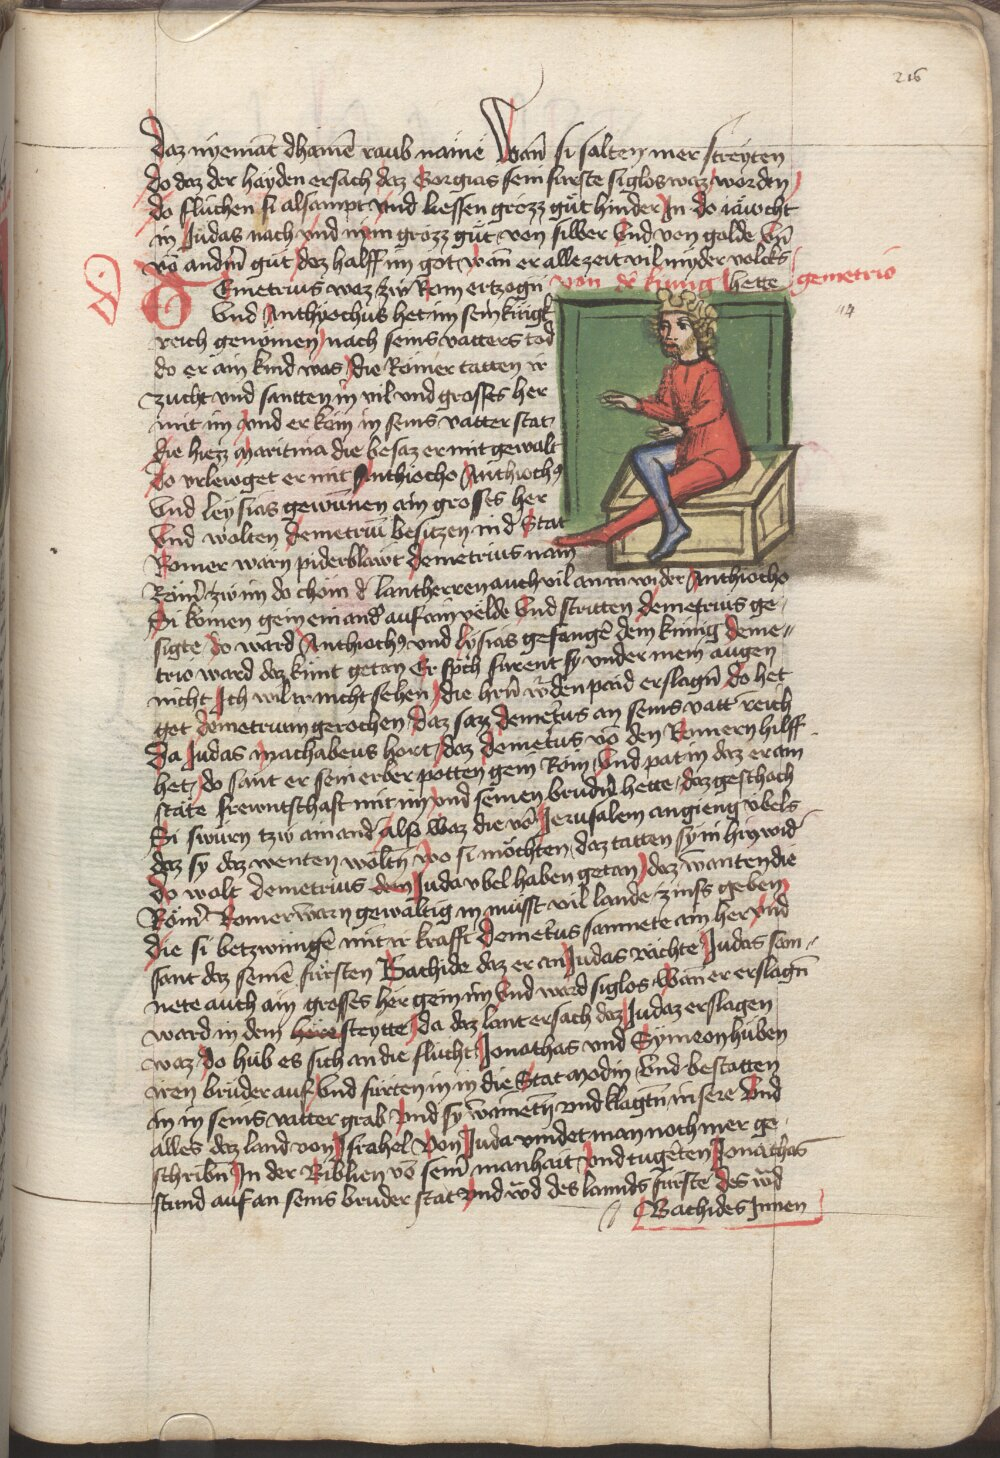 216
Daz nyemant dhainē raub name Wañ si solten mer streyten
do daz der hayden ersach daz Gorgias sein furste siglos waz worden
do fluchen si alsampt vnd liessen grozz gůt hinder In do iawcht
in Judas nach vnd nym grozz gůt von silber Vnd von golde Vñ
võ andm̃ gůt daz halff im got wan er alle zeit vil mynder volcks
hette
von dē kunig gemetrio
Demetrius waz zw̃ Rom ertzogñ
Vnd Anthyochus het im sein kungk
reich genomen nach seins vatters tod
do er ain kind was die Romer tatten ir
zucht vnd santten in vil vnd grosses her
mit im vnd er kom in seins vatter stat
die hiezz Maritima die besaz er mit gewalt
do vrlewget er mit Anthiocho Anthiochꝯ
Vnd leysias gewunnen ain grosses her
Vnd wolten demetriū besitzen in dˀ Stat
Romer warn piderblawt demetrius nam
Romˀ zw im do chom dˀ lantherren auch vil an in wider Anthiocho
Si komen gein ein andˀ auf ain velde Vnd stritten demetrius ge-
sigte do ward Anthiochꝯ vnd lysias gefangē dem kunig deme-
trio ward daz kunt getan Er sprch furent sy vnder mein augen
nicht Ich wil ir nicht sehen die hrñ wˀden paid erslagñ do het
got demetrium gerochen daz sazz demetˀus an seins vattˀ reich
Da Judas Machabeus hort daz demetˀus võ den Romern hilff
het do sant er sein erber potten gein Rom Vnd pat in daz er ain
state frewntschaft mit im vnd seinen brudˀn hette daz geschach
Si swurn tzw ain andˀ also Waz die võ Jerusalem angieng vbels
daz sy daz wenten woltñ wo si mochten daz tatten sy in hin widˀ
do wolt demetrius dem Juda vbel haben getan daz wanten die
Romˀ Romer warn gewaltig in musst vil lande zinss geben
die si betzwungē mit ir krafft Demetˀus samnete ain her vnd
sant daz seinē fursten Bachide daz er an Judas rachte Judas sam-
nete auch ain grosses her gein im Vnd ward siglos Wan er erslagñ
ward in dem here streytte da daz lant ersach daz Judaz erslagen
waz do hub es sich an die flucht Jonathas vnd Symeon huben
iren bruder auf Vnd furten in in die Stat Modin Vnd bestatten
in in seins vatter grab vnd sy wainetñ vnd klagtñ in sere Vnd
alles daz land von Israhel Von Juda vindet man noch mer ge-
schribñ In der Biblien võ seinˀ manhait vnd tugēten Jonathas
stund auf an seins bruder stat vnd wˀd des lannds furste des wˀd
Bachides Innen